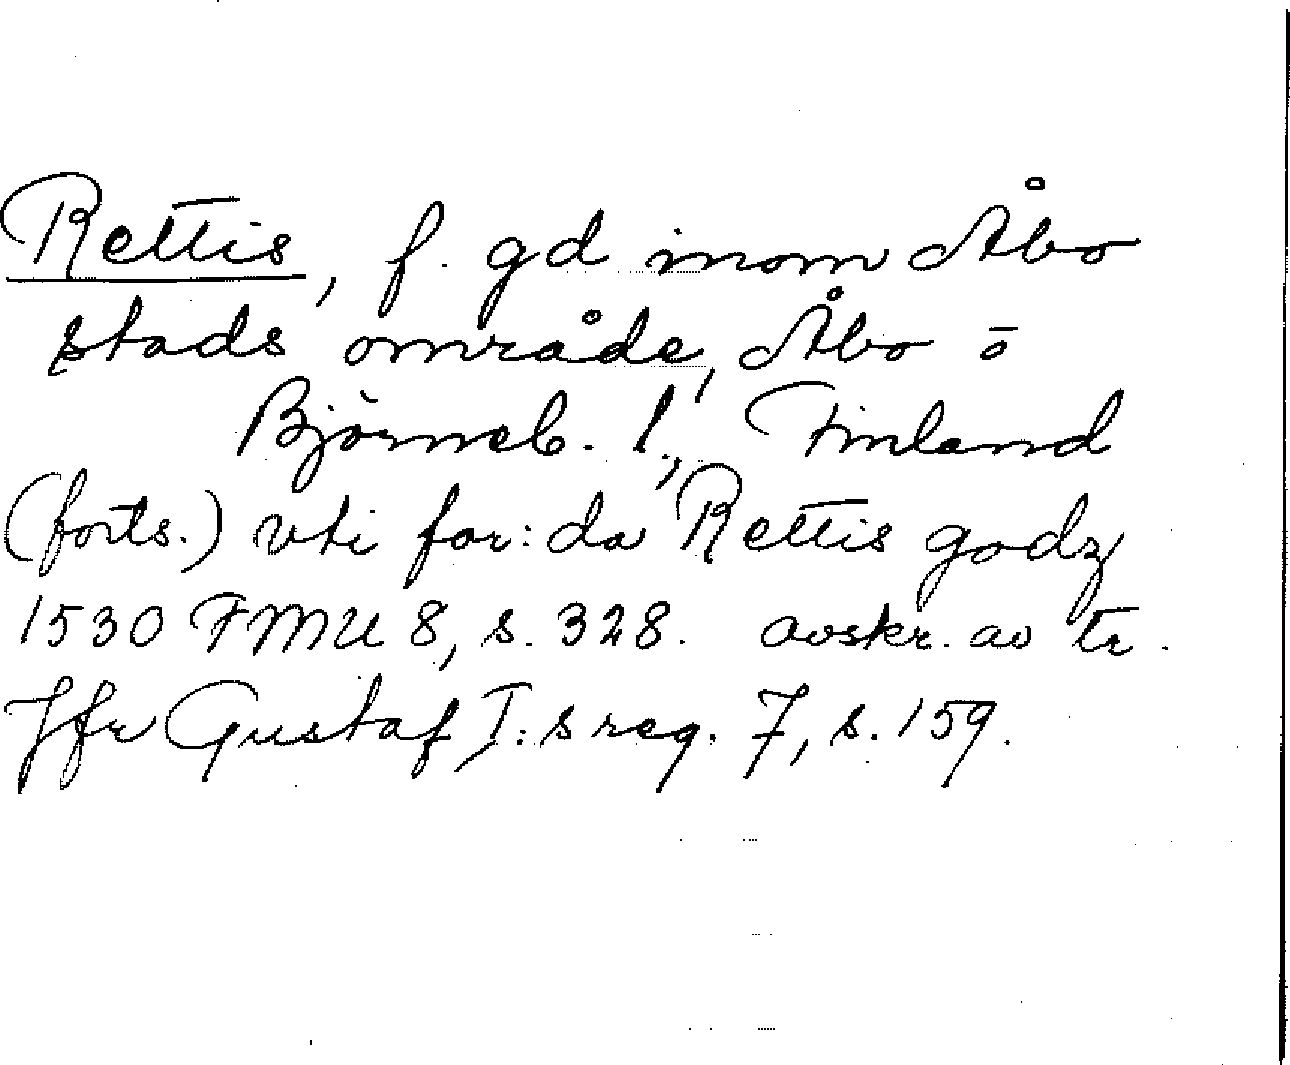 Rettis, f. gd inom Åbo
stads område, Åbo o
Björneb. l., Finland
(forts.) vti for: da Rettis godz
1530 FMU 8, s. 328. avskr. av tr.
Jfr Gustaf I: s reg. 7, s. 159.